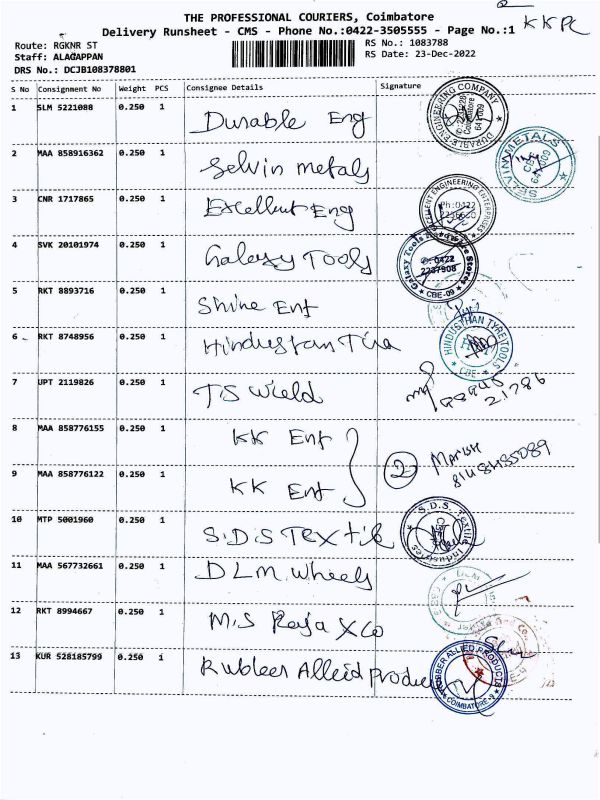 KKPC
THE PROFESSIONAL COURIERS, Coimbatore
Delivery Runsheet - CMS - Phone No.:0422-3505555 - Page No.:1
Route: RGKNR ST
Staff: ALAGAPPAN
DRS No.: DCJB108378801
RS No.: 1083788
RS Date: 23-Dec-2022
S No Consignment No Weight PCS Consignee Details Signature
1 SLM 5221088 0.250 1 Durable Eng DURABLE ENGINEERING COMPANY
2 MAA 858916362 0.250 1 Selvin metals SELVIN METALS
3 CNR 1717865 0.250 1 Excellent Eng EXCELLENT ENGINEERING ENTERPRISES Ph:0422
4 SVK 20101974 0.250 1 Galaxy Tools Galaxy Tools 0422 2237908 CBE-09
5 RKT 8893716 0.250 1 Shine Ent
6 RKT 8748956 0.250 1 Hindustan HINDUSTHAN TYRE TOOLS CBE
7 UPT 2119826 0.250 1 TS Wield 21786
8 MAA 858776155 0.250 1 KK Ent
9 MAA 858776122 0.250 1 KK Ent 2 Marish
10 MTP 5001960 0.250 1 S.D.S Textile S.D.S. Textile Industries
11 MAA 567732661 0.250 1 DLM Wheels
12 RKT 8994667 0.250 1 M.S Raja X Co
13 KUR 528185799 0.250 1 Rubber Allied Products RUBBER ALLIED PRODUCTS COIMBATORE-9